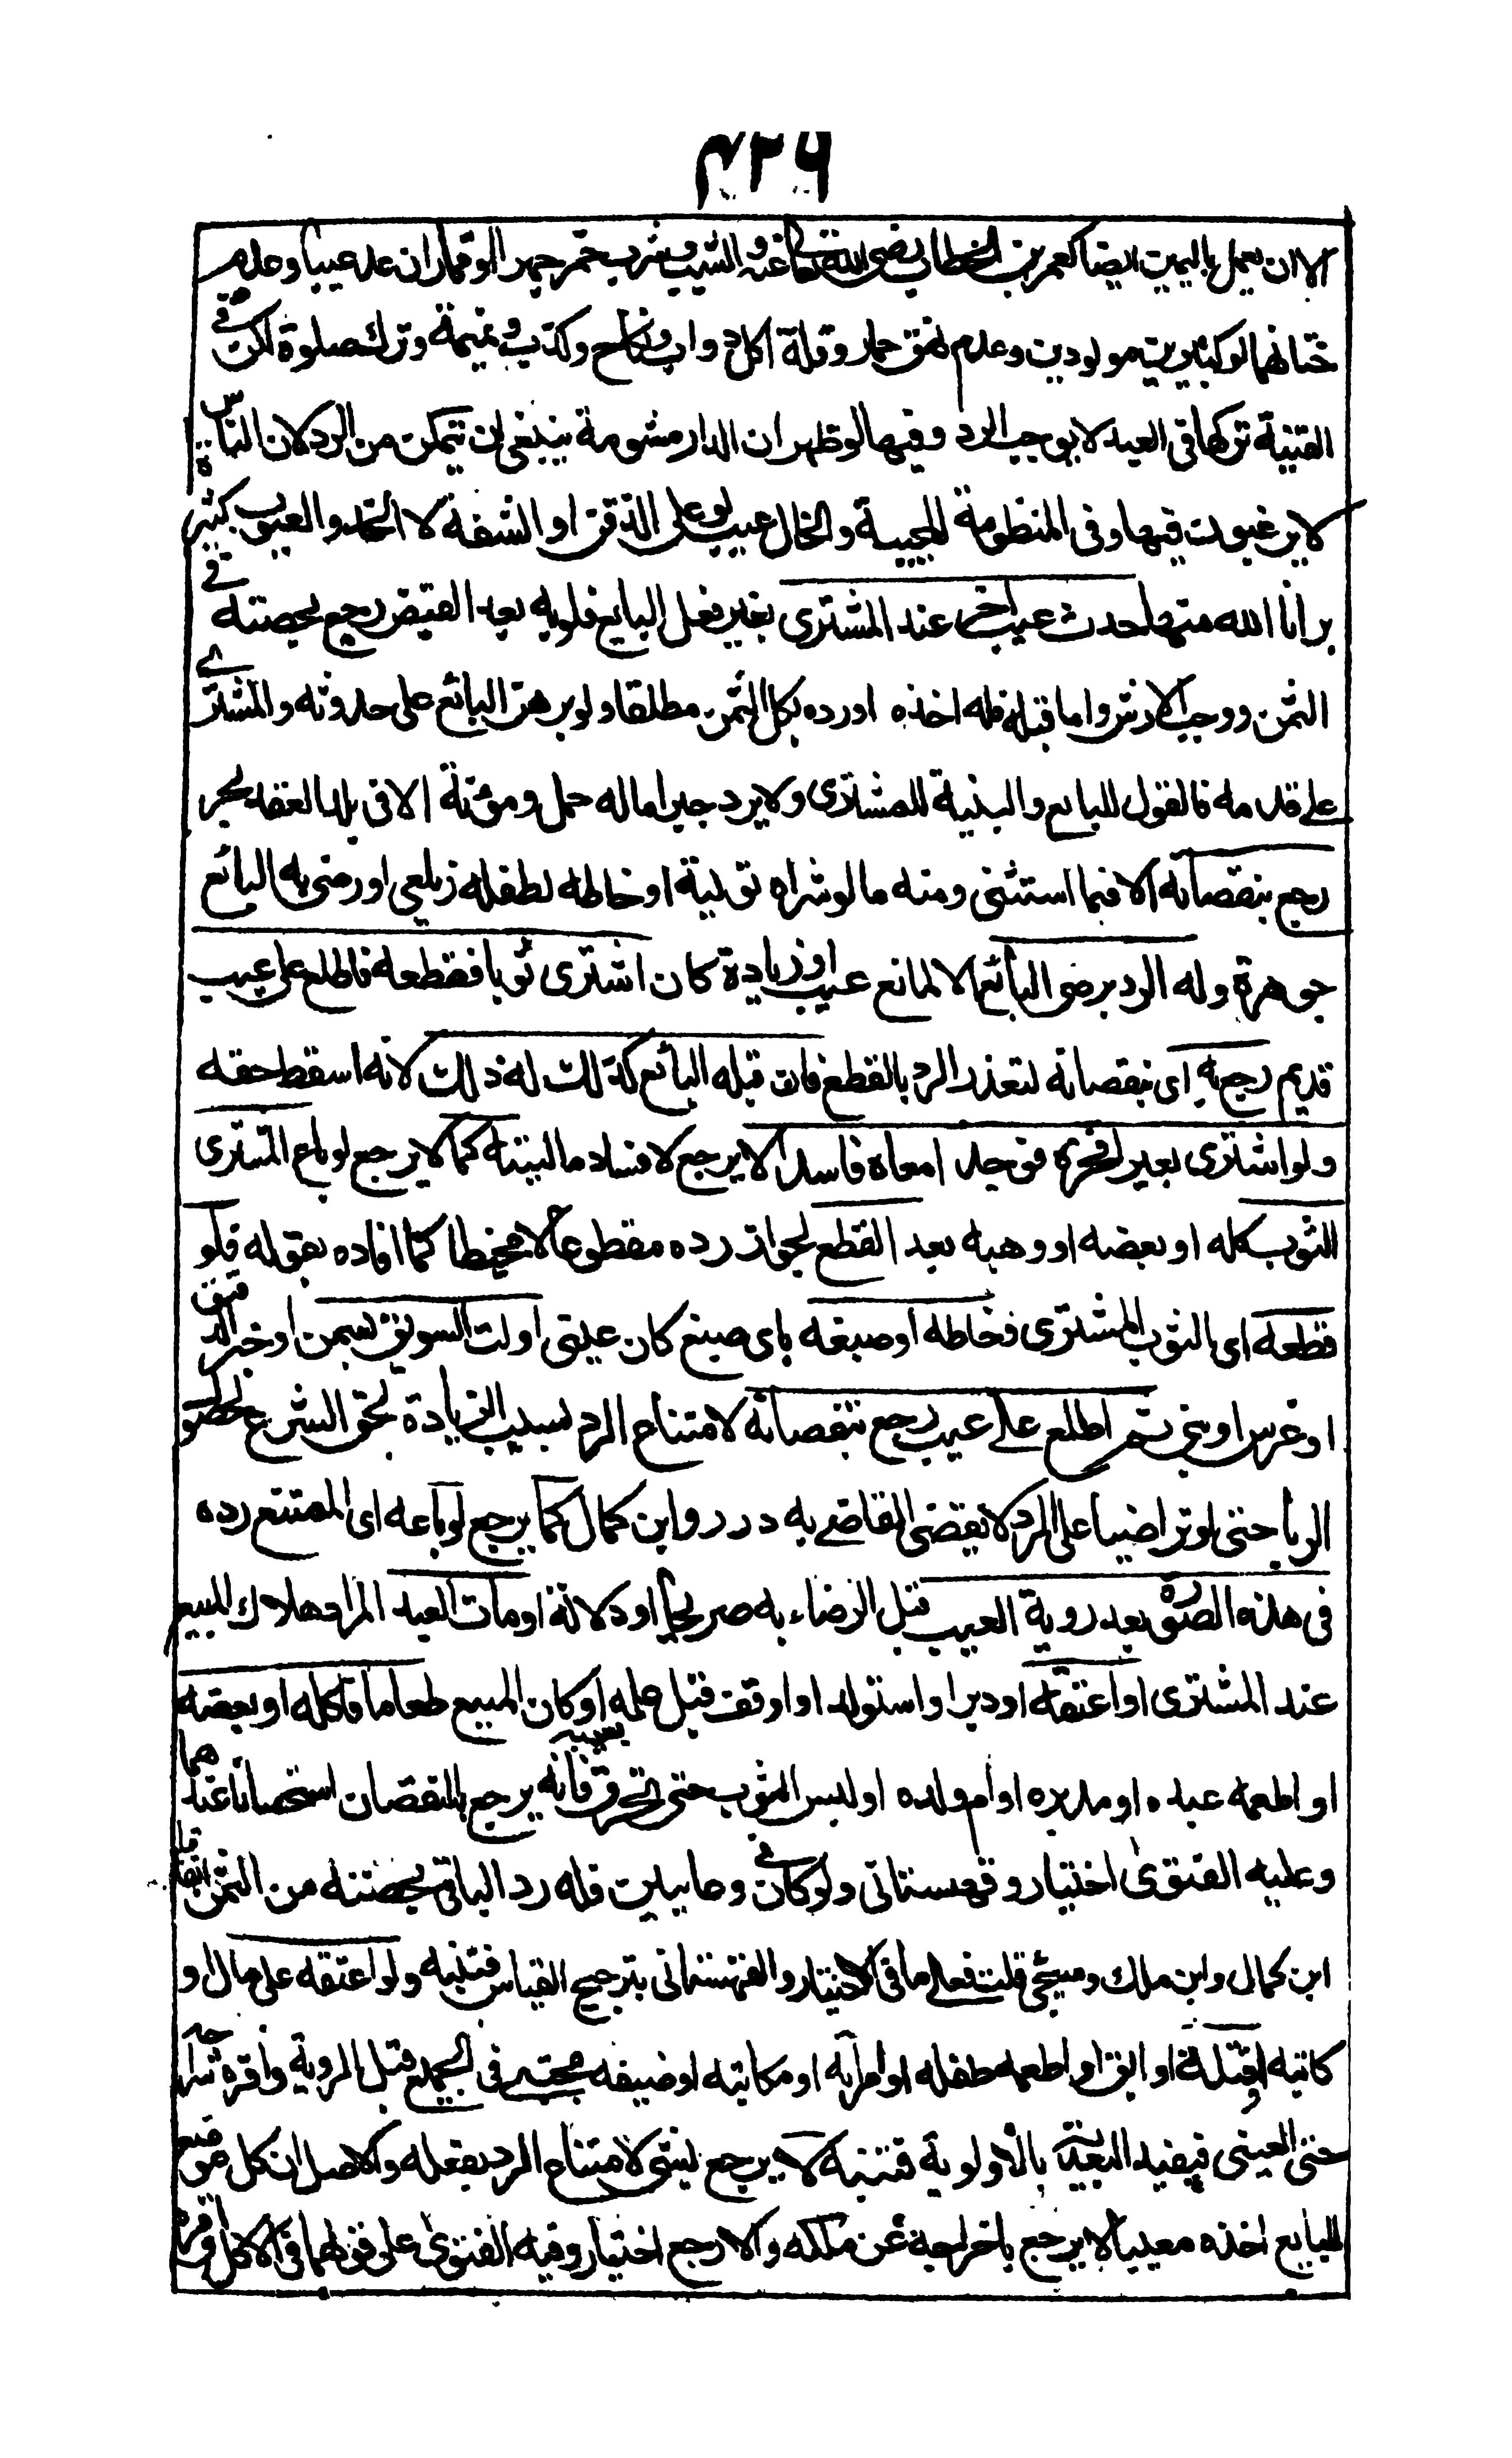 ٤٣٦
الا ان يعمل باليمين ايضا كعمر بن الخطاب رضى الله تعالى عنه والشيب وشرب خمر جهرا لو قمارا ان عد عيبا وعدم
ختانهما لو كبيرين مولودين وعدم نهق حمار وقلة اكل دواب ونكاح وكذب ونميمة وترك صلوة لكن في
القنية تركها في العبد لا يوجب الرد وفيها لو ظهر ان الدار مشومة ينبغي ان يتمكن من الرد لان الناس
لا يرغبون فيها وفى المنظومة المحبية والخال عيب لو على الذقن او الشفة لا الخد والعيوب كثيرة
برانا الله منها حدث عيب اخر عند المشترى بغير فعل البايع فلو به بعد القبض رجع بحصته في
الثمن ووجب الارش واما قبله فله اخذه اورده بكل الثمن مطلقا ولو برهن البائع على حدوثه والمشترى
على قدمه فالقول للبايع والبينة للمشترى ولا يرد جبرا ماله حمل ومؤنة الا في بلد العقد بحر
رجع بنقصانه الا فيما استثنى ومنه مالو شراه تولية او خاطه لطفله زيلعى او رضى به البائع
جوهرة وله الرد برضى البائع الا لمانع عيب او زيادة كان اشترى ثوبا فقطعه فاطلع على عيب
قديم رجع به اى بنقصانه لتعذر الرد بالقطع فان قبله البائع كذلك له ذلك لانه اسقط حقه
ولو اشترى بعيرا فنحره فوجد امعاه فاسدا لا يرجع لافساد ماليته كما لا يرجع لو باع المشترى
الثوب كله او بعضه او وهبه بعد القطع لجواز رده مقطوعا لا مخيطا كما افاده بقوله فلو
قطعه اى الثوب المشترى فخاطه او صبغه باى صبغ كان عينى او لت السويق بسمن او خبز الدقيق
او غرس او بنى ثم اطلع على عيب رجع بنقصانه لامتناع الرد بسبب الزيادة لحق الشرع لحصول
الربا حتى لو تراضيا على الرد لا يقضى القاضى به درر وابن كمال كما يرجع لو باعه اى الممتنع رده
فى هذه الصورة بعد روية العيب قبل الرضاء به صريحا او دلالة او مات العبد المراد هلاك المبيع
عند المشترى او اعتقه او دبر او استولد او اوقف قبل علمه او كان المبيع طعاما فاكله او بعضه
او اطعمه عبده او مدبره او ام ولده او لبس الثوب حتى تخرق فانه يرجع بالنقصان استحسانا عندهما
وعليه الفتوى اختيار وقهستانى ولو كان في وعايين فله رد الباقى بحصته من الثمن اتفاقا
ابن كمال وابن ملك وسيجى قلت فعلى ما فى الاختيار والقهستانى بترجيح القياس فتنبه ولو اعتقه على مال او
كاتبه او قتله او ابق او اطعمه طفله او امراته او مكاتبه او ضيفه مجتبى فى الجميع قبل الروية واقره شراح
حتى العينى فيفيد البعدية بالاولوية فتنبه لا يرجع بشى لامتناع الرد بفعله والاصل ان كل موضع
للبايع اخذه معيبا لا يرجع باخراجه عن ملكه والا رجع اختيار وفيه الفتوى على قولهما فى الاكل واقره